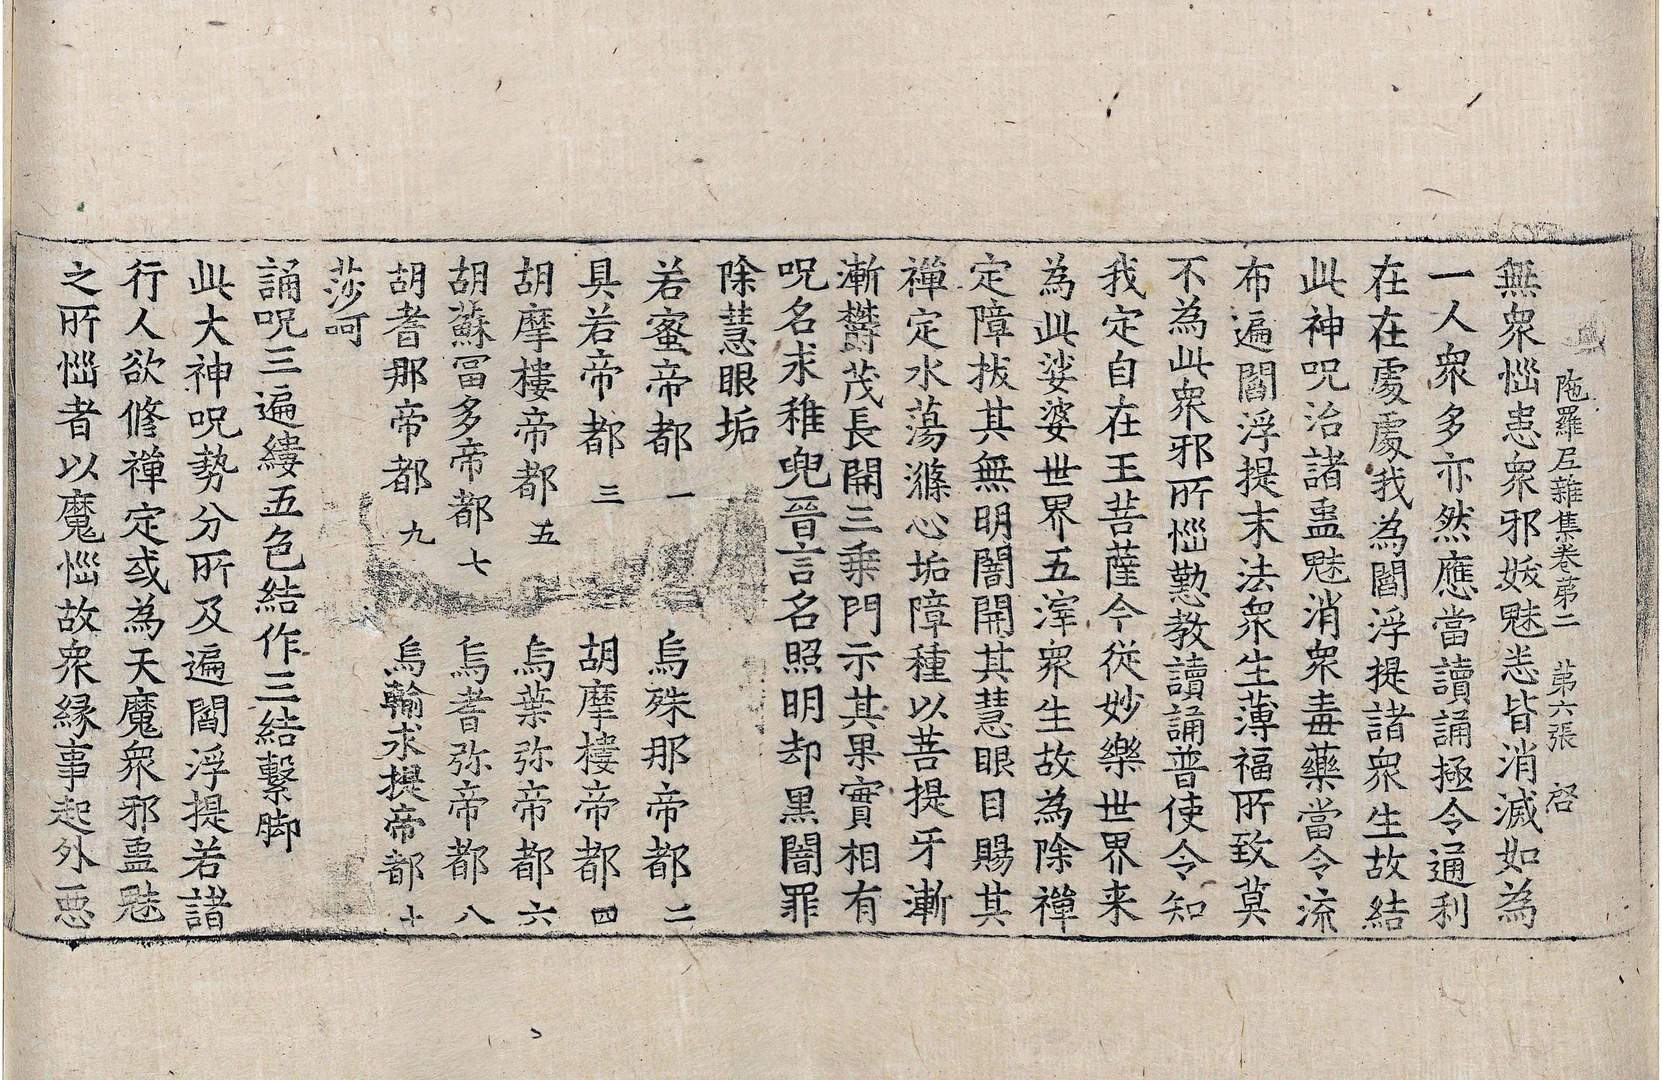 陁羅尼雜集卷第二 第六張 啓
無衆惱患衆邪妖魅悉皆消滅如為
一人衆多亦然應當讀誦極令通利
在在處處我為閻浮提諸衆生故結
此神呪治諸蛊魅消衆毒藥當令流
布遍閻浮提末法衆生薄福所致莫
不為此衆邪所惱懃教讀誦普使令知
我定自在王菩薩今從妙樂世界来
為此娑婆世界五滓衆生故為除禪
定障拔其無明闇開其慧眼目賜其
禪定水蕩滌心垢障種以菩提牙漸
漸欝茂長開三乗門示其果實相有
呪名求稚兜晉言名照明却黒闇罪
除慧眼垢
若蜜帝都 一 烏殊那帝都 二
具若帝都 三 胡摩樓帝都 四
胡摩樓帝都 五 烏葉弥帝都 六
胡蘇冨多帝都 七 烏耆弥帝都 八
胡耆那帝都 九 烏輸求提帝都 十
莎呵
誦呪三遍縷五色結作三結繫脚
此大神呪勢分所及遍閻浮提若諸
行人欲修禪定或為天魔衆邪蛊魅
之所惱者以魔惱故衆縁事起外惡